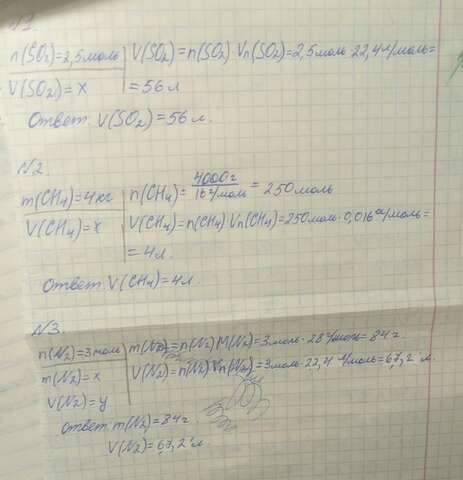 №1.
n(SO₂)=2,5моль V(SO₂)=n(SO₂)·Vn(SO₂)=2,5моль·22,4л/моль=
V(SO₂)=x =56л
Ответ: V(SO₂)=56л.
№2
m(CH₄)=4кг n(CH₄)=4000г/16г/моль=250моль
V(CH₄)=x V(CH₄)=n(CH₄)·Vn(CH₄)=250моль·0,016г/моль=
=4л.
Ответ: V(CH₄)=4л.
№3
n(N₂)=3моль m(N₂)=n(N₂)·M(N₂)=3моль·28г/моль=84г.
m(N₂)=x V(N₂)=n(N₂)·Vn(N₂)=3моль·22,4л/моль=67,2л.
V(N₂)=y
Ответ: m(N₂)=84г.
V(N₂)=67,2л.